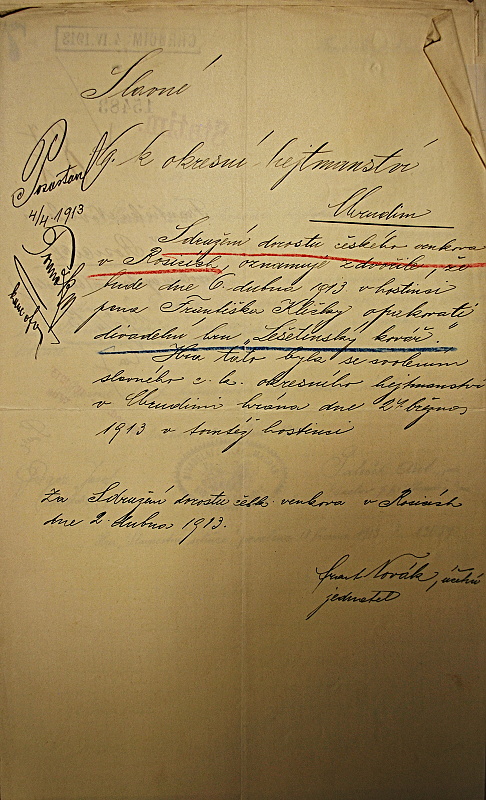 Slavné
c. k. okresní hejtmanství
Chrudim
Sdružení dorostu českého venkova
v Rosicích, oznamuje zdvořile že
bude dne 6. dubna 1913 v hostinci
pana Františka Kličky opakovati
divadelní hru „Lešetínský kovář."
Hra tato byla se svolením
slavného c. k. okresního hejtmanství
v Chrudimi hrána dne 24. března
1913 v tomtéž hostinci
Za Sdružení dorostu česk. venkova v Rosicích
dne 2. dubna 1913.
Frant Novák,
jednatel
4/4 1913